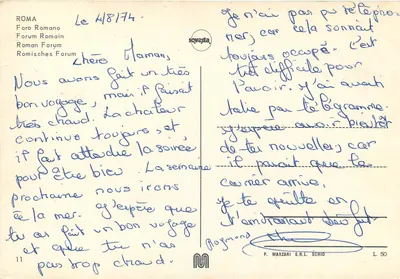 ROMA
Foro Romano
Forum Romain
Roman Forum
Römisches Forum
Le 4/8/74.
Chère Maman,
Nous avons fait un très
bon voyage, mais il faisait
très chaud. La chaleur
continue toujours, et,
il faut attendre la soirée
pour être bien. La semaine
prochaine nous irons
à la mer. J'espère que
tu as fait un bon voyage
et que tu n'as
pas trop chaud.
11
Je n'ai pas pu télépho
ner, car cela sonnait
toujours occupé. C'est
très difficile pour
l'avoir. J'ai averti
par télégramme.
J'espère avoir bientôt
de tes nouvelles, car
il paraît que le
courrier arrive.
Je te quitte en
t'embrassant bien fort
Raymond
P. MARZARI S.R.L. SCHIO
L. 50